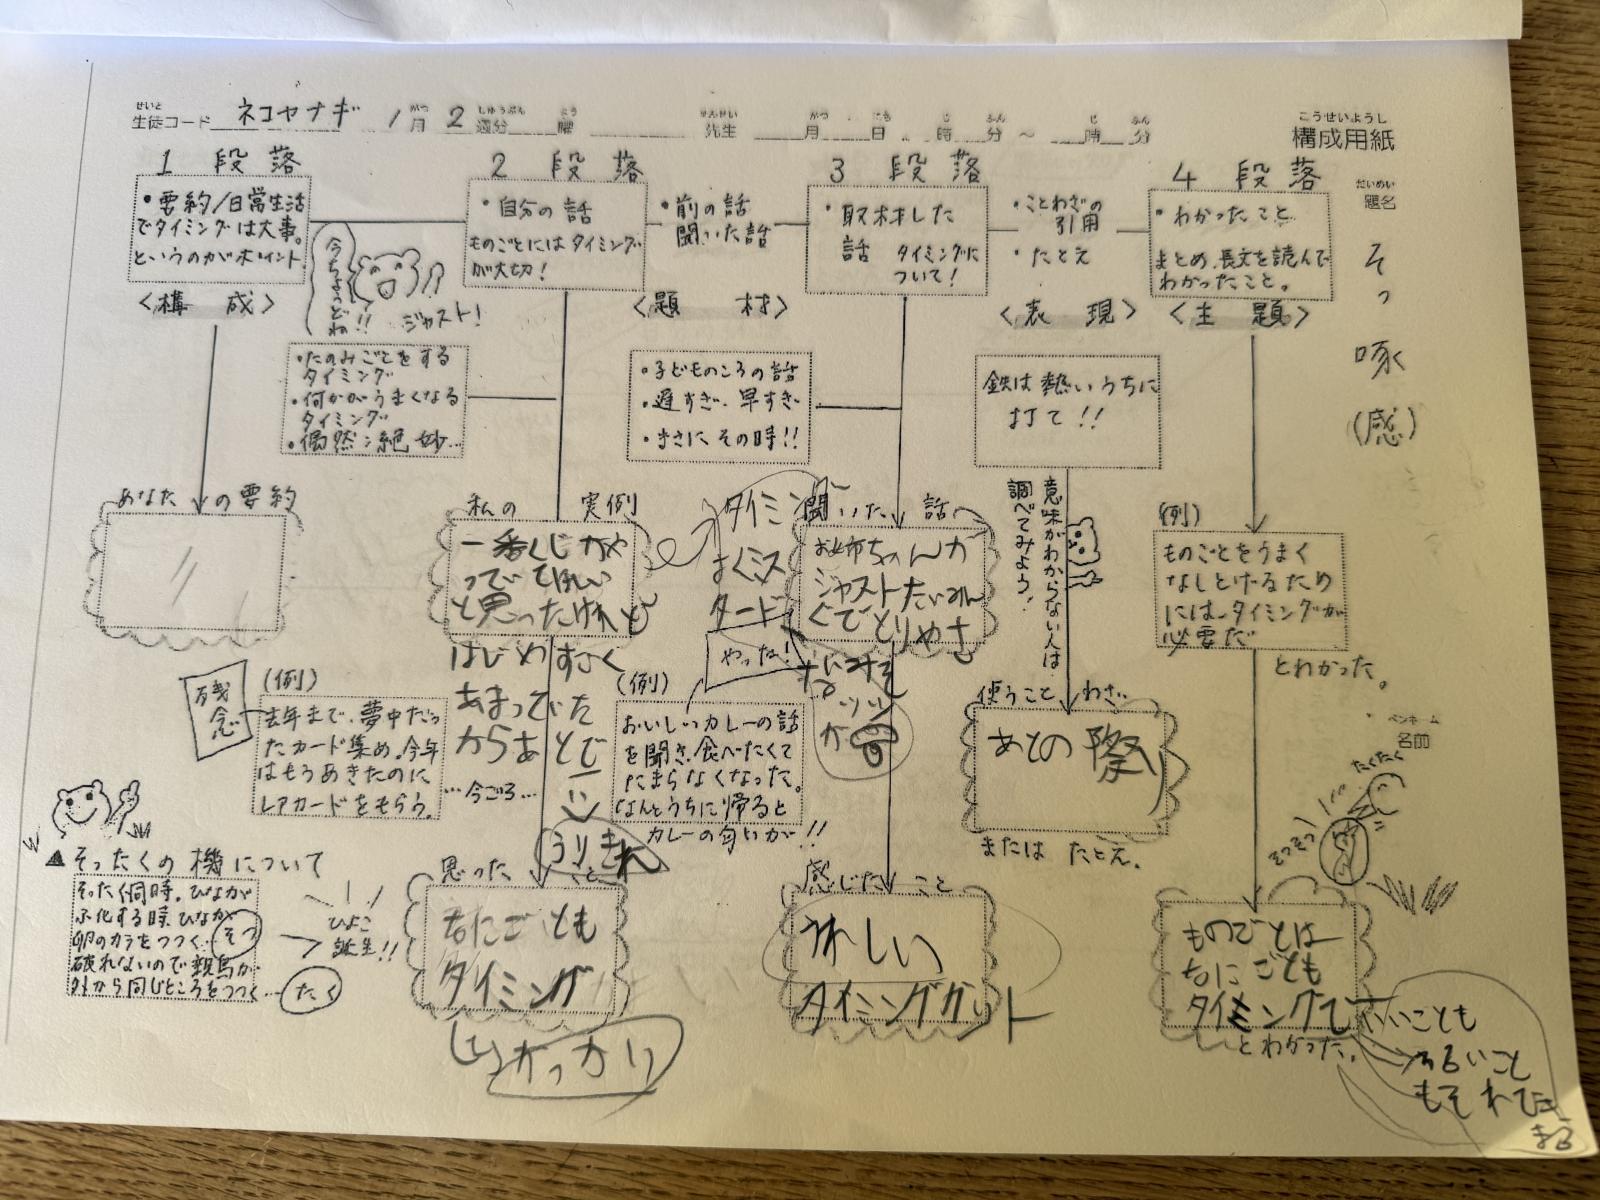 こうせいようし
構成用紙
せいと
生徒コード ネコヤナギ 1月 2週分 曜 先生 月 日 時 分 ～ 時 分
だいめい
題名
そっ啄(感)
ペンネーム
名前
1 段落
・要約/日常生活
でタイミングは大事。
というのがポイント。
〈構 成〉
今ちょうどね!!
ジャスト!
2 段落
・自分の話
ものごとにはタイミング
が大切!
・前の話
聞いた話
〈題 材〉
3 段落
・取材した
話 タイミングに
ついて!
・ことわざの
引用
・たとえ
〈表 現〉
4 段落
・わかったこと
まとめ、長文を読んで
わかったこと。
〈主 題〉
・たのみごとをする
タイミング
・何かがうまくなる
タイミング
・偶然:絶妙…
・子どものころの話
・遅すぎ、早すぎ
・まさにその時!!
鉄は熱いうちに
打て!!
意味がわからない人は
調べてみよう!
あなたの要約
私の 実例
一番くじがや
っていてほしい
と思ったけれど
はじめすごく
あまっていた
からあとで
…今ごろ…
うりきれ
タイミング
はくミス
タード
聞いた 話
お姉ちゃんが
ジャストたいみん
ぐでとりやさ
なみそ
ッツ
が
(例)
ものごとをうまく
なしとげるため
には、タイミングが
必要だ
とわかった。
残念
(例)
去年まで、夢中だっ
たカード集め。今年
はもうあきたのに
レアカードをもらう。
やったね!
(例)
おいしいカレーの話
を聞き、食べたくて
たまらなくなった。
なんとうちに帰ると
カレーの匂いが!!
使うことわざ
あとの祭り
または たとえ。
▲そったくの機について
そったく同時。ひなが
ふ化する時、ひなが
卵のカラをつつく…そつ
破れないので親鳥が
外から同じところをつつく…たく
ひよこ
誕生!!
思ったこと
なにごとも
タイミング
がっかり
感じたこと
うれしい
タイミングがット
たくたく
そつそつ
ものごとは
なにごとも
タイミングで
とわかった。
いいことも
わるいこと
もそれできまる